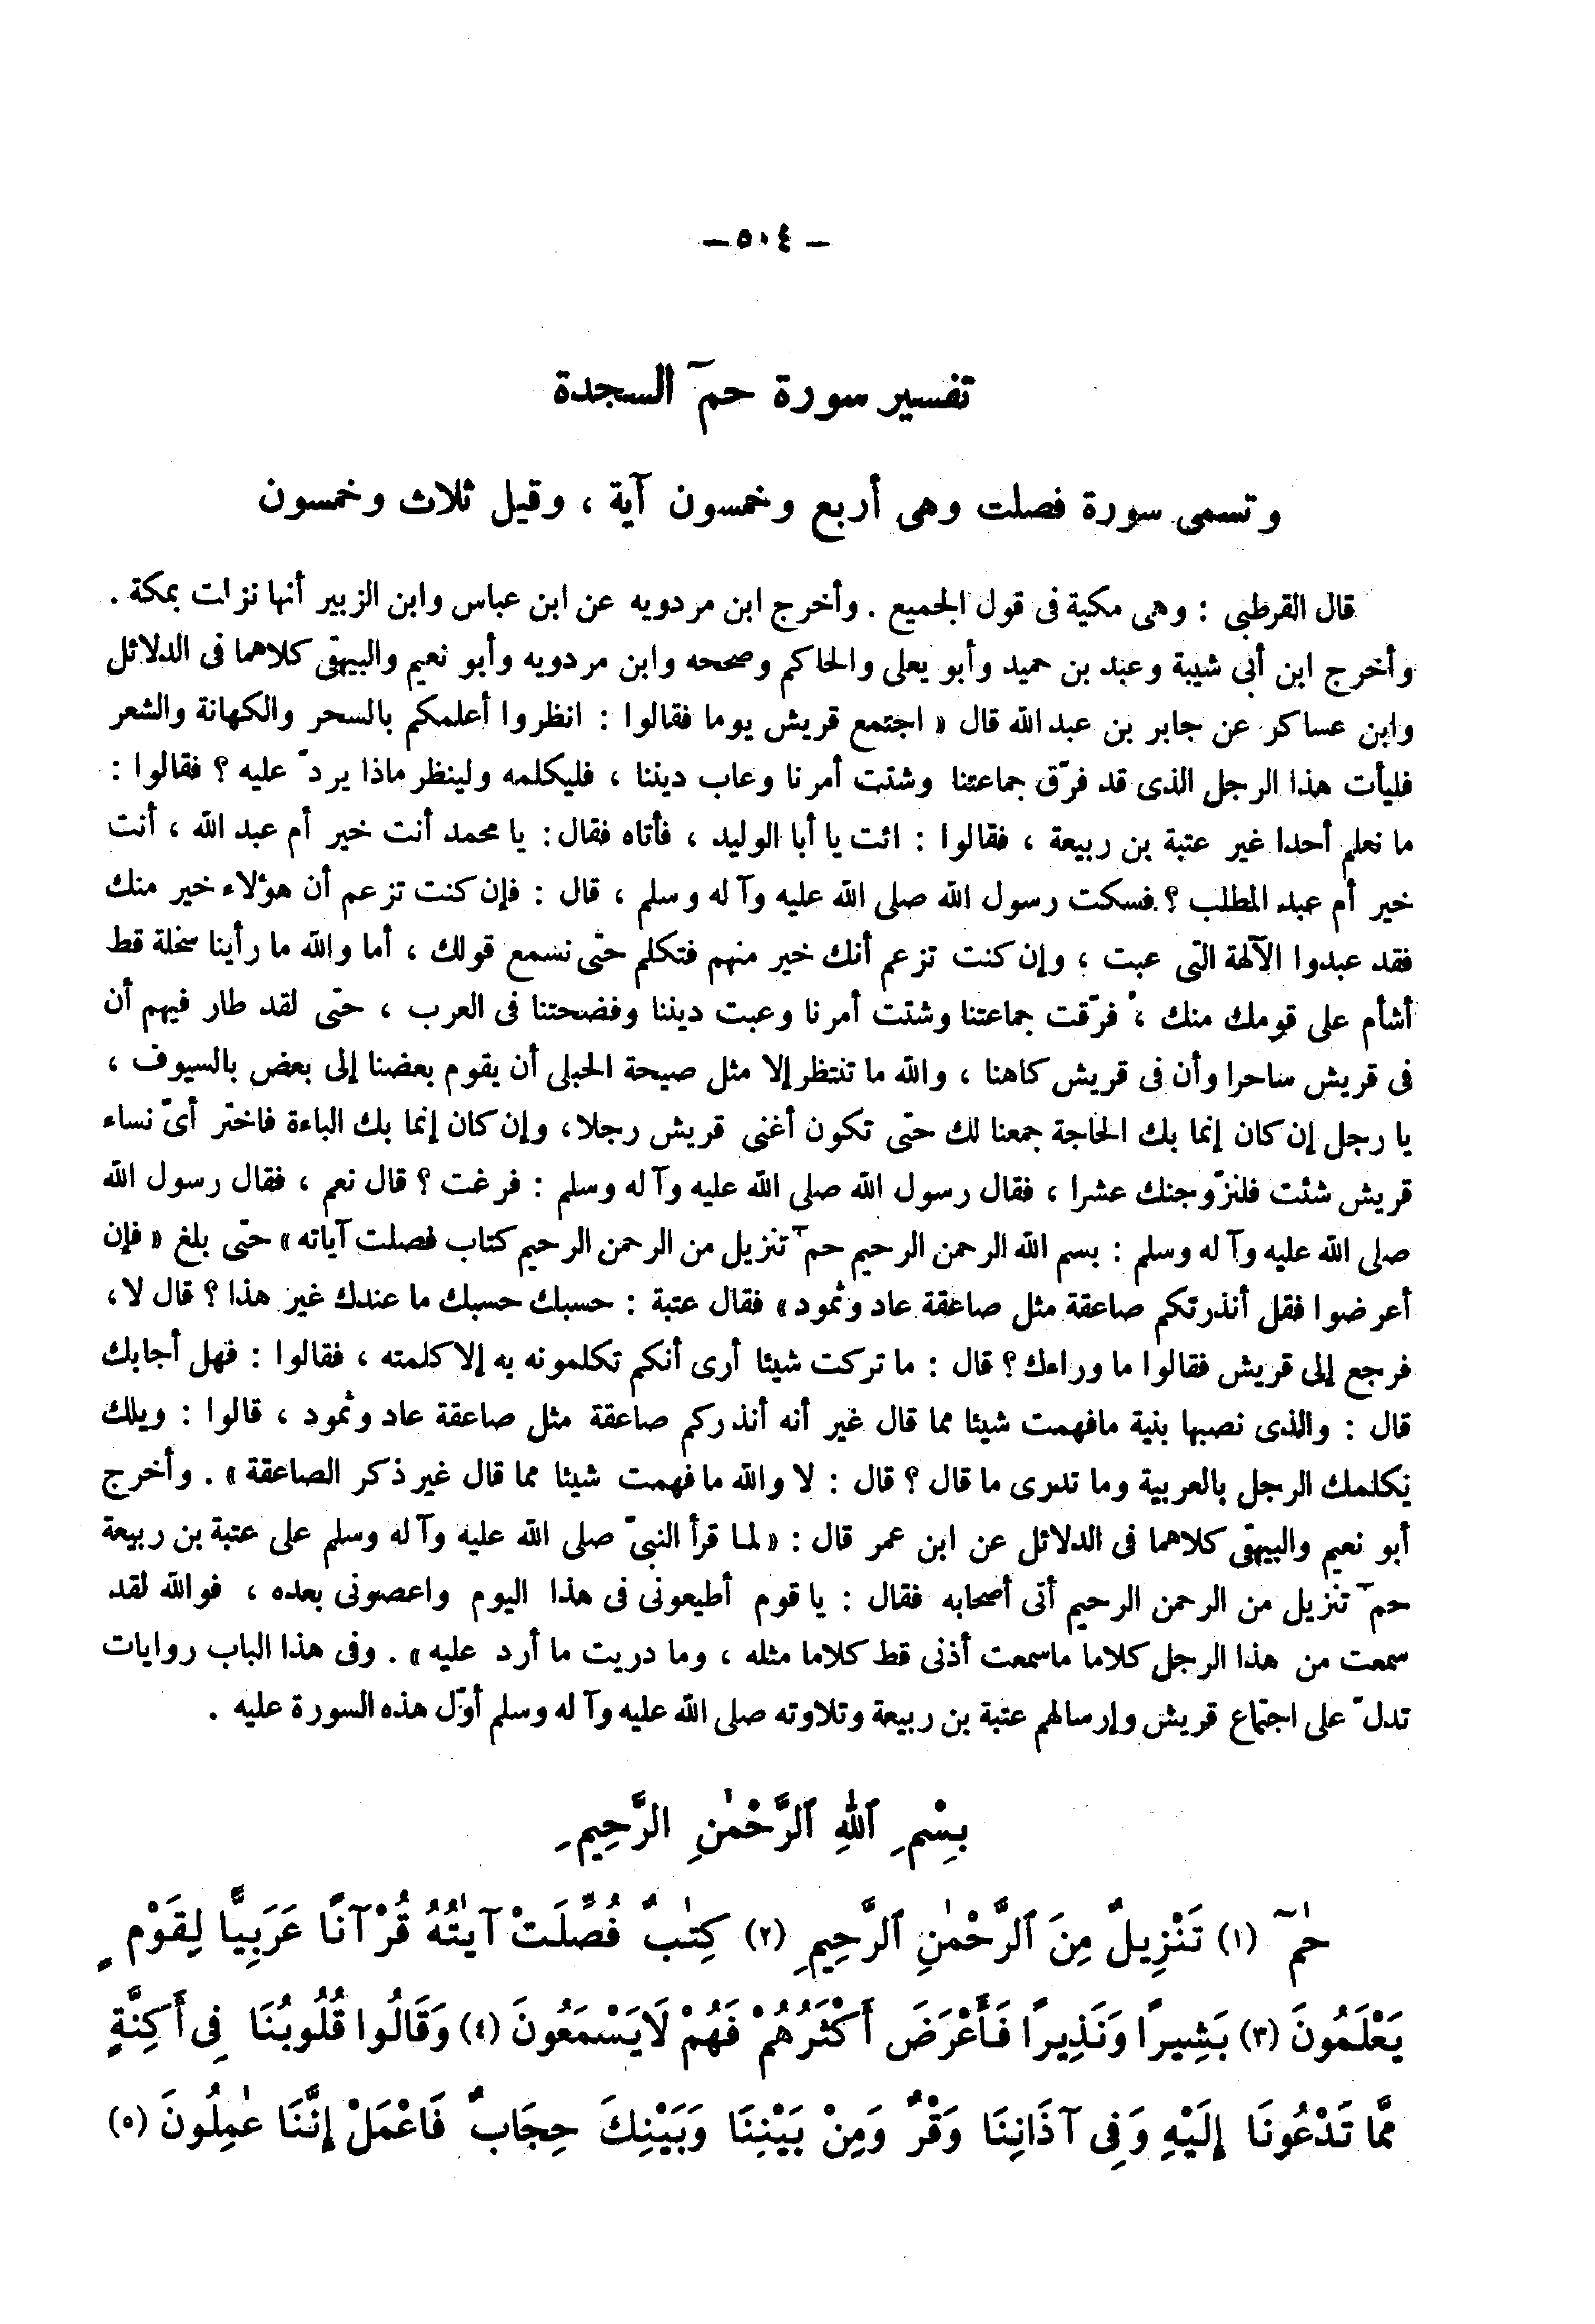 – ٥٠٤ –
تفسير سورة حمۤ السجدة
وتسمى سورة فصلت وهى أربع وخمسون آية ، وقيل ثلاث وخمسون
قال القرطبى : وهى مكية فى قول الجميع . وأخرج ابن مردويه عن ابن عباس وابن الزبير أنها نزلت بمكة .
وأخرج ابن أبى شيبة وعبد بن حميد وأبو يعلى والحاكم وصححه وابن مردويه وأبو نعيم والبيهقى كلاهما فى الدلائل
وابن عساكر عن جابر بن عبد الله قال « اجتمع قريش يوما فقالوا : انظروا أعلمكم بالسحر والكهانة والشعر
فليأت هذا الرجل الذى قد فرّق جماعتنا وشتت أمرنا وعاب ديننا ، فليكلمه ولينظر ماذا يردّ عليه ؟ فقالوا :
ما نعلم أحدا غير عتبة بن ربيعة ، فقالوا : ائت يا أبا الوليد ، فأتاه فقال : يا محمد أنت خير أم عبد الله ، أنت
خير أم عبد المطلب ؟ فسكت رسول الله صلى الله عليه وآله وسلم ، قال : فإن كنت تزعم أن هؤلاء خير منك
فقد عبدوا الآلهة التى عبت ، وإن كنت تزعم أنك خير منهم فتكلم حتى نسمع قولك ، أما والله ما رأينا سخلة قط
أشأم على قومك منك ، فرّقت جماعتنا وشتت أمرنا وعبت ديننا وفضحتنا فى العرب ، حتى لقد طار فيهم أن
فى قريش ساحرا وأن فى قريش كاهنا ، والله ما تنتظر إلا مثل صيحة الحبلى أن يقوم بعضنا إلى بعض بالسيوف ،
يا رجل إن كان إنما بك الحاجة جمعنا لك حتى تكون أغنى قريش رجلا ، وإن كان إنما بك الباءة فاختر أىّ نساء
قريش شئت فلنزّوجنك عشرا ، فقال رسول الله صلى الله عليه وآله وسلم : فرغت ؟ قال نعم ، فقال رسول الله
صلى الله عليه وآله وسلم : بسم الله الرحمن الرحيم حمۤ تنزيل من الرحمن الرحيم كتاب فصلت آياته » حتى بلغ « فإن
أعرضوا فقل أنذرتكم صاعقة مثل صاعقة عاد وثمود » فقال عتبة : حسبك حسبك ما عندك غير هذا ؟ قال لا ،
فرجع إلى قريش فقالوا ما وراءك ؟ قال : ما تركت شيئا أرى أنكم تكلمونه به إلا كلمته ، فقالوا : فهل أجابك
قال : والذى نصبها بنية مافهمت شيئا مما قال غير أنه أنذركم صاعقة مثل صاعقة عاد وثمود ، قالوا : ويلك
يكلمك الرجل بالعربية وما تدرى ما قال ؟ قال : لا والله ما فهمت شيئا مما قال غير ذكر الصاعقة » . وأخرج
أبو نعيم والبيهقى كلاهما فى الدلائل عن ابن عمر قال : « لما قرأ النبىّ صلى الله عليه وآله وسلم على عتبة بن ربيعة
حمۤ تنزيل من الرحمن الرحيم أتى أصحابه فقال : يا قوم أطيعونى فى هذا اليوم واعصونى بعده ، فوالله لقد
سمعت من هذا الرجل كلاما ماسمعت أذنى قط كلاما مثله ، وما دريت ما أرد عليه » . وفى هذا الباب روايات
تدلّ على اجتماع قريش وإرسالهم عتبة بن ربيعة وتلاوته صلى الله عليه وآله وسلم أوّل هذه السورة عليه .
بِسْمِ ٱللهِ ٱلرَّحْمٰنِ الرَّحِيمِ
حٰمۤ (١) تَنْزِيلٌ مِنَ ٱلرَّحْمٰنِ ٱلرَّحِيمِ (٢) كِتٰبٌ فُصِّلَتْ آيٰتُهُ قُرْآنًا عَرَبِيًّا لِقَوْمٍ
يَعْلَمُونَ (٣) بَشِيرًا وَنَذِيرًا فَأَعْرَضَ أَكْثَرُهُمْ فَهُمْ لَايَسْمَعُونَ (٤) وَقَالُوا قُلُوبُنَا فِى أَكِنَّةٍ
مِّمَّا تَدْعُونَا إِلَيْهِ وَفِى آذَانِنَا وَقْرٌ وَمِنْ بَيْنِنَا وَبَيْنِكَ حِجَابٌ فَاعْمَلْ إِنَّنَا عٰمِلُونَ (٥)